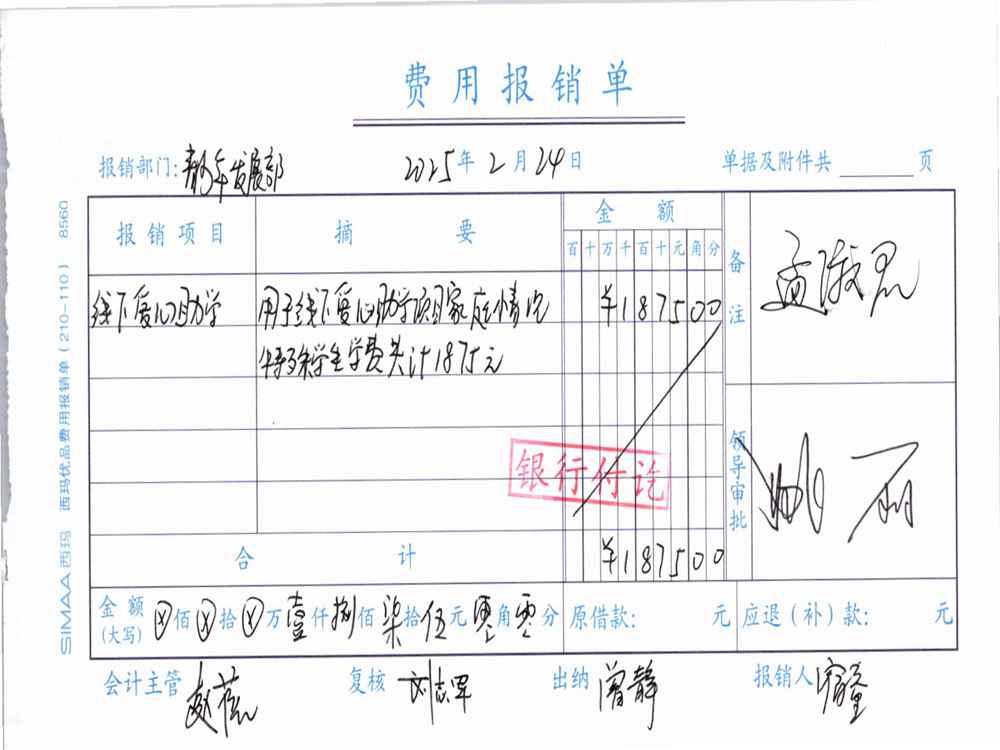 费用报销单
报销部门：青少年发展部 2025年2月24日 单据及附件共 页
报销项目 摘要 金额 备注
百十万千百十元角分
线下爱心助学 用于线下爱心助学项目家庭情况 ¥187500
特殊学生学费共计1875元
银行付讫
领导审批
合计 ¥187500
金额(大写) ⓧ佰ⓧ拾ⓧ万壹仟捌佰柒拾伍元零角零分 原借款： 元 应退（补）款： 元
会计主管 赵 复核 刘志军 出纳 曾静 报销人
SIMAA西玛 西玛优品费用报销单（210-110） 8560